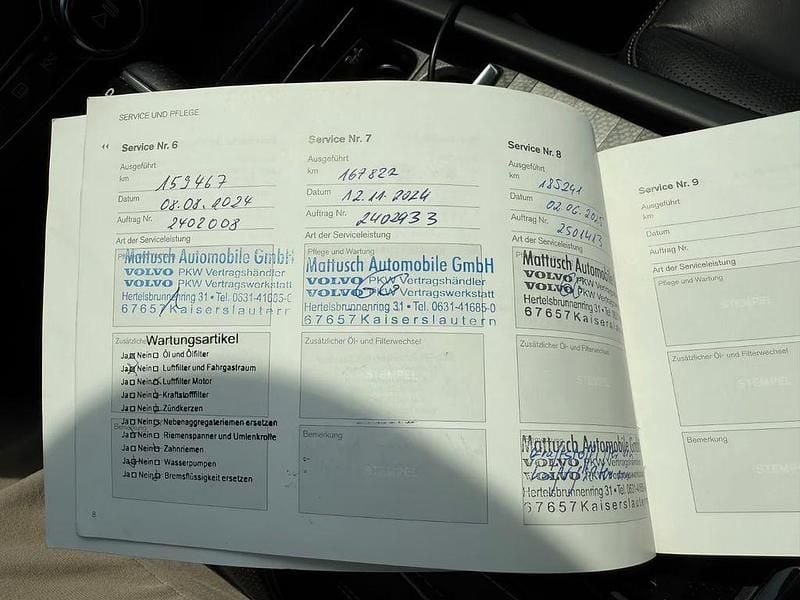 SERVICE UND PFLEGE
Service Nr. 6
Ausgeführt
km 159467
Datum 08.08.2024
Auftrag Nr. 2402008
Art der Serviceleistung
Mattusch Automobile GmbH
VOLVO PKW Vertragshändler
VOLVO PKW Vertragswerkstatt
Hertelsbrunnenring 31 • Tel. 0631-41685-0
67657 Kaiserslautern
Zusätzlicher
Wartungsartikel
Ja Nein Öl und Ölfilter
Ja Nein Luftfilter und Fahrgastraum
Ja Nein Luftfilter Motor
Ja Nein Kraftstofffilter
Ja Nein Zündkerzen
Ja Nein Nebenaggregateriemen ersetzen
Ja Nein Riemenspanner und Umlenkrolle
Ja Nein Zahnriemen
Ja Nein Wasserpumpen
Ja Nein Bremsflüssigkeit ersetzen
8
Service Nr. 7
Ausgeführt
km 167822
Datum 12.11.2024
Auftrag Nr. 2402933
Art der Serviceleistung
Pflege und Wartung
Mattusch Automobile GmbH
VOLVO PKW Vertragshändler
VOLVO PKW Vertragswerkstatt
Hertelsbrunnenring 31 • Tel. 0631-41685-0
67657 Kaiserslautern
Zusätzlicher Öl- und Filterwechsel
STEMPEL
Bemerkung
STEMPEL
Service Nr. 8
Ausgeführt
km 185241
Datum 02.06.2025
Auftrag Nr. 2501413
Art der Serviceleistung
Mattusch Automobile
VOLVO PKW Vertragshändler
VOLVO PKW Vertragswerkstatt
Hertelsbrunnenring 31 • Tel. 0631
67657 Kaiserslautern
Zusätzlicher Öl- und Filterwechsel
Mattusch Automobile GmbH
VOLVO PKW Vertragshändler
VOLVO PKW Vertragswerkstatt
Hertelsbrunnenring 31 • Tel. 0631
67657 Kaiserslautern
Service Nr. 9
Ausgeführt
km
Datum
Auftrag Nr.
Art der Serviceleistung
Pflege und Wartung
STEMPEL
Zusätzlicher Öl- und Filterwechsel
STEMPEL
Bemerkung
STEMPEL